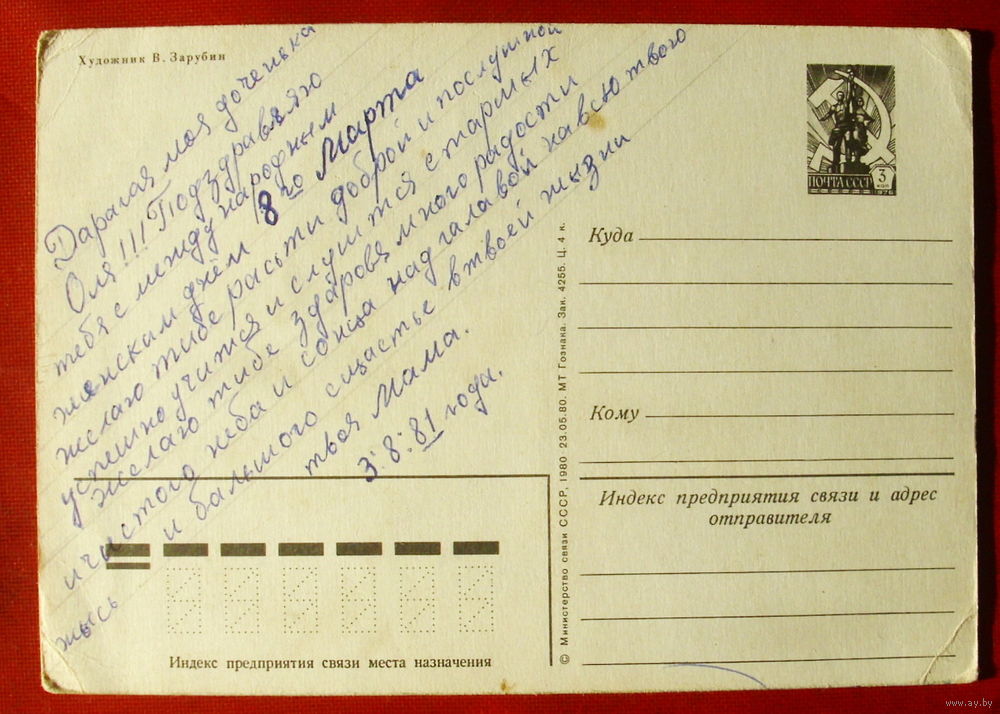 Художник В. Зарубин
Дарагая моя доченька
Оля!!! Подздравляю
тебя с между народным
женским днём 8го Марта
желаю тибе расьти доброй и послушной
успешно учится и слушатся старших
желаю тибе здаровя много радости
и чистого неба и сонца над галавой на всю твого
жысь и большого сщастье в твоей жызни
твоя Мама.
3:8:81 года.
ПОЧТА СССР
3 коп
1976
Куда
Кому
Индекс предприятия связи и адрес
отправителя
Индекс предприятия связи места назначения
© Министерство связи СССР, 1980 23.05.80. МТ Гознака. Зак. 4255. Ц. 4 к.
www.ay.by